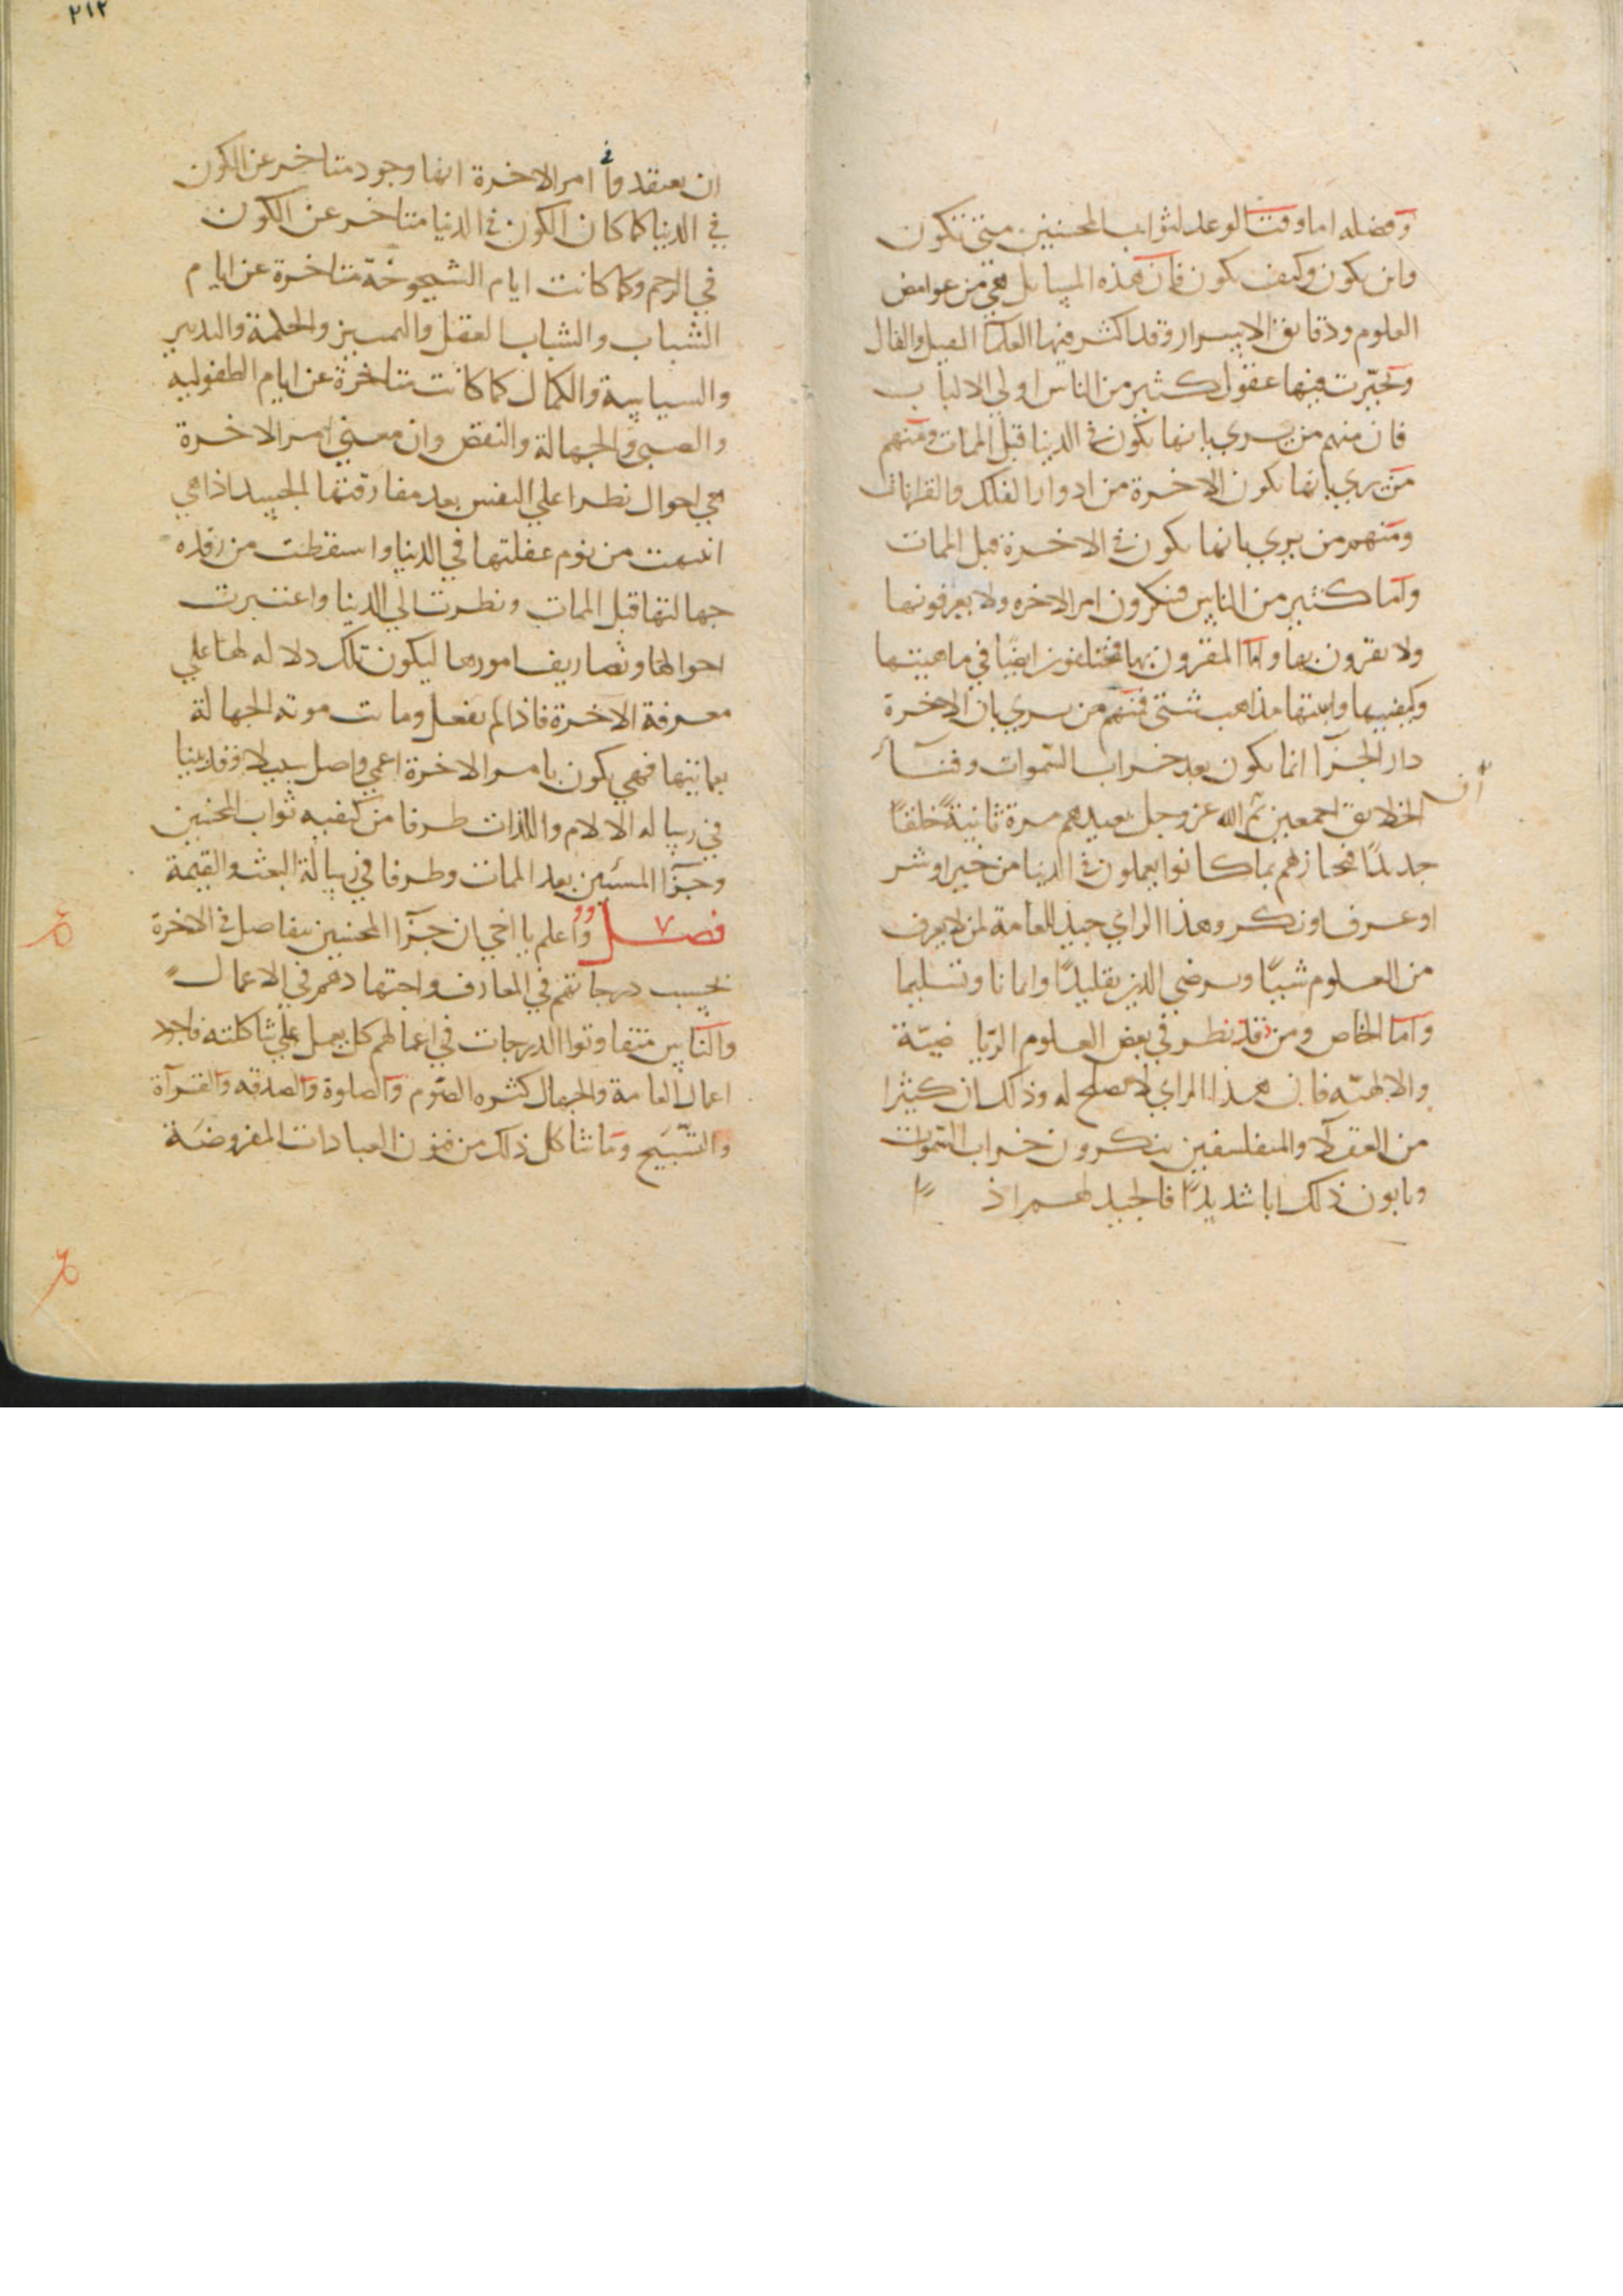 وفضله اما وقت الوعد لثواب المحسنين متى تكون
واين يكون وكيف يكون فان هذه المسايل هي من غوامض
العلوم ودقايق الاسرار وقد اكثر فيها العلما القيل والقال
وتحيرت فيها عقول كثير من الناس اولي الالباب
فان منهم من يري بانها تكون في الدنيا قبل الممات ومنهم
من يري بانها تكون الاخرة من ادوار الفلك والقرانات
ومنهم من يري بانها تكون في الاخرة قبل الممات
واما كثير من الناس فنكرون امر الاخره ولا يعرفونها
ولا يقرون بها واما المقرون بها فمختلفون ايضا في ماهيتها
وكيفيتها واينيتها مذاهب شتى فمنهم من يري بان الاخرة
دار الجزا انما تكون بعد خراب السموات وفنآء
الخلايق اجمعين ثم ان الله عز وجل يعيدهم مرة ثانية خلقًا
جديدًا فيجازهم بما كانوا يعملون في الدنيا من خير او شر
او عرف او نكر وهذا الراي جيد للعامة لمن لا يعرف
من العلوم شيًا ويرضي الدين تقليدًا وايمانا وتسليما
واما الخاص ومن قد نظر في بعض العلوم الريا ضيّة
والالهيّه فان هذا الراي لا يصلح له وذلك ان كثيرا
من العقلآ والمتفلسفين ينكرون خراب السموات
ويابون ذلك ابا شديدًا فالجيد لهم اذ
٢١٢
ان يعتقدوا في امر الاخرة انها وجود متاخر عن الكون
في الدنيا كما كان الكون في الدنيا متاخر عن الكون
في الرحم وكما كانت ايام الشيخوخة متاخرة عن ايام
الشباب والشباب العقل والتمييز والحكمة والتدبير
والسياسة والكمال كما كانت متاخرة عن ايام الطفوليه
والصبي والجهالة والنقص وان معني امر الاخرة
هي احوال تطرا علي النفس بعد مفارقتها الجسد اذا هي
انتبهت من نوم غفلتها في الدنيا واستيقظت من رقدة
جهالتها قبل الممات ونظرت الي الدنيا واعتبرت
احوالها وتصاريف امورها ليكون تلك دلاله لها علي
معرفة الاخرة فاذا لم تفعل وماتت موتة الجهالة
بعمايتها فهي تكون بامر الاخرة اعمي واضل سبيلا فقد بينا
في رساله الالام واللذات طرفا من كيفيه ثواب المحسنين
وجزآ المسئين بعد الممات وطرفا في رسالة البعث والقيمة
فصل ٧ واعلم يا اخي ان جزآ المحسنين يتفاضل في الاخرة
بحسب درجاتهم في المعارف واجتهادهم في الاعمال
والناس متفاوتوا الدرجات في اعمالهم كل يعمل علي شاكلته فاجود
اعمال العامة والجهال كثره الصوم والصلوة والصدقه والقرآة
والتسبيح وما شاكل ذلك من فنون العبادات المفروضة